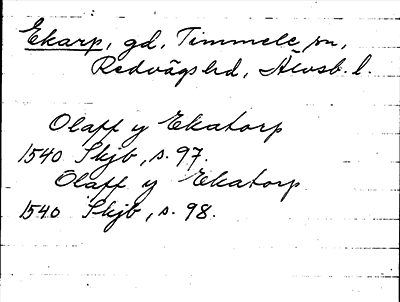 Ekarp, gd, Timmele sn,
Redvägs hd, Älvsb. l.
Olaff y Ekatorp
1540 Skjb, s. 97.
Olaff y Ekatorp
1540 Skjb, s. 98.